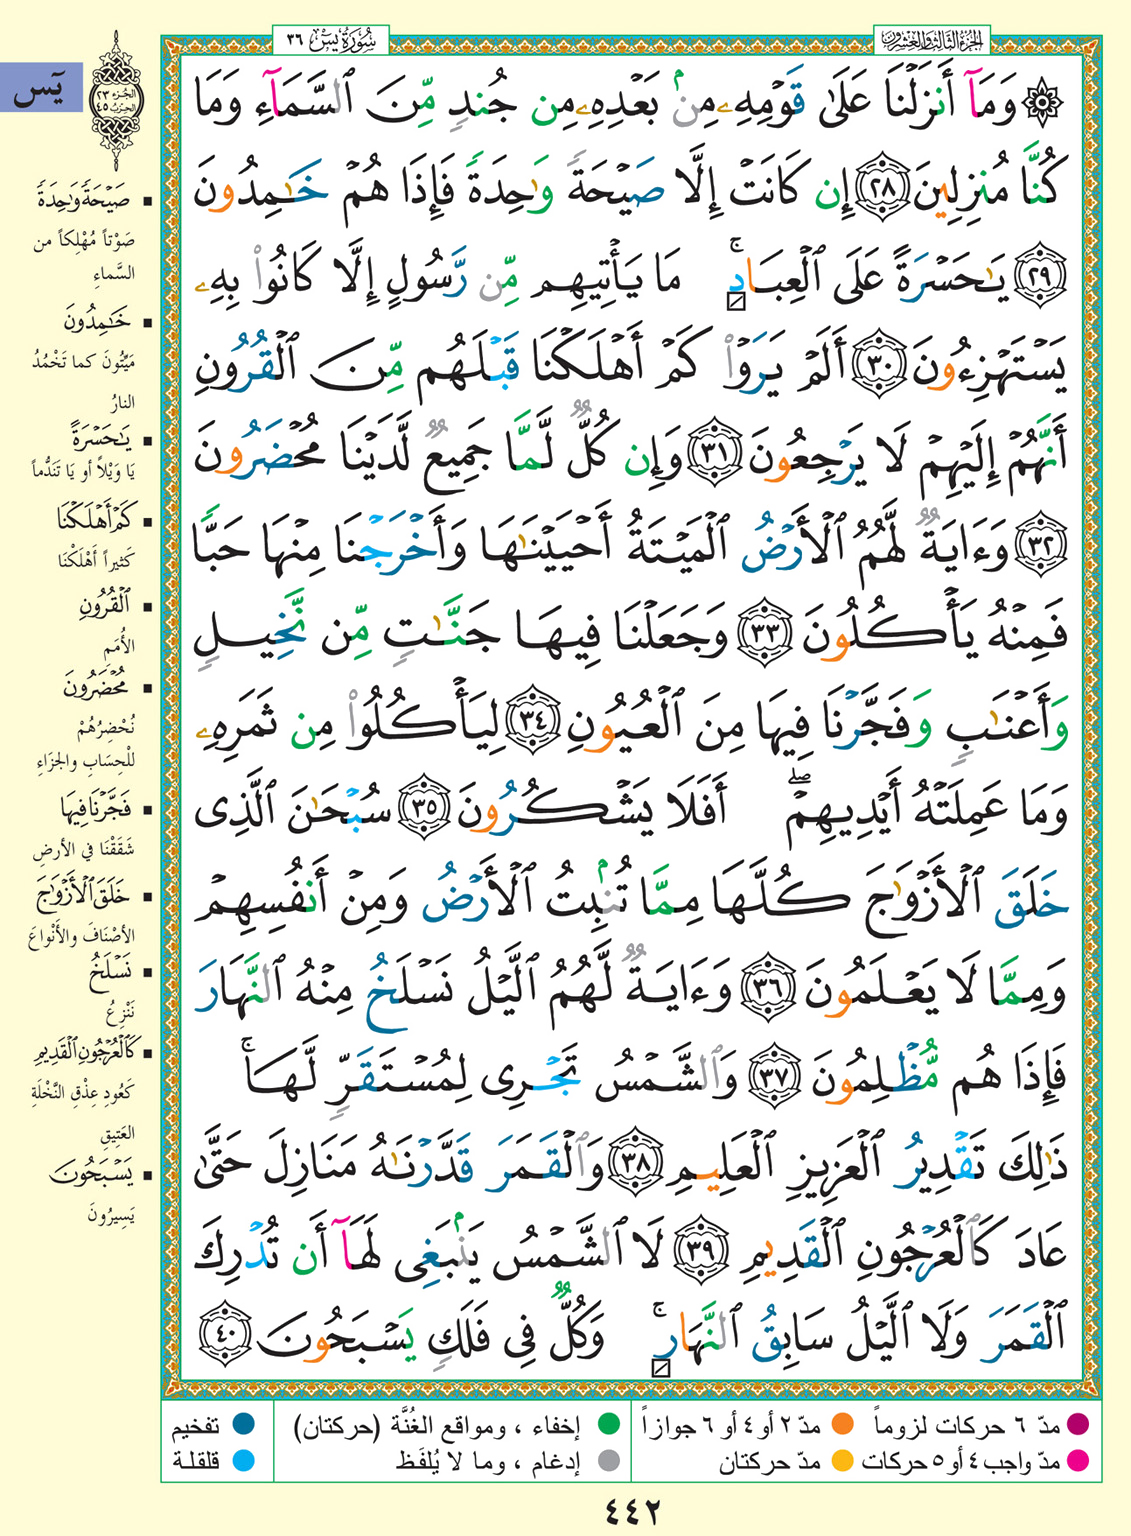 الجزء الثالث والعشرون
سورة يس ٣٦
۞ وَمَآ أَنزَلْنَا عَلَىٰ قَوْمِهِۦ مِنۢ بَعْدِهِۦ مِن جُندٍ مِّنَ ٱلسَّمَآءِ وَمَا
كُنَّا مُنزِلِينَ ٢٨ إِن كَانَتْ إِلَّا صَيْحَةً وَٰحِدَةً فَإِذَا هُمْ خَـٰمِدُونَ
٢٩ يَـٰحَسْرَةً عَلَى ٱلْعِبَادِ ۚ مَا يَأْتِيهِم مِّن رَّسُولٍ إِلَّا كَانُوا۟ بِهِۦ
يَسْتَهْزِءُونَ ٣٠ أَلَمْ يَرَوْا۟ كَمْ أَهْلَكْنَا قَبْلَهُم مِّنَ ٱلْقُرُونِ
أَنَّهُمْ إِلَيْهِمْ لَا يَرْجِعُونَ ٣١ وَإِن كُلٌّ لَّمَّا جَمِيعٌ لَّدَيْنَا مُحْضَرُونَ
٣٢ وَءَايَةٌ لَّهُمُ ٱلْأَرْضُ ٱلْمَيْتَةُ أَحْيَيْنَـٰهَا وَأَخْرَجْنَا مِنْهَا حَبًّا
فَمِنْهُ يَأْكُلُونَ ٣٣ وَجَعَلْنَا فِيهَا جَنَّـٰتٍ مِّن نَّخِيلٍ
وَأَعْنَـٰبٍ وَفَجَّرْنَا فِيهَا مِنَ ٱلْعُيُونِ ٣٤ لِيَأْكُلُوا۟ مِن ثَمَرِهِۦ
وَمَا عَمِلَتْهُ أَيْدِيهِمْ ۖ أَفَلَا يَشْكُرُونَ ٣٥ سُبْحَـٰنَ ٱلَّذِى
خَلَقَ ٱلْأَزْوَٰجَ كُلَّهَا مِمَّا تُنۢبِتُ ٱلْأَرْضُ وَمِنْ أَنفُسِهِمْ
وَمِمَّا لَا يَعْلَمُونَ ٣٦ وَءَايَةٌ لَّهُمُ ٱلَّيْلُ نَسْلَخُ مِنْهُ ٱلنَّهَارَ
فَإِذَا هُم مُّظْلِمُونَ ٣٧ وَٱلشَّمْسُ تَجْرِى لِمُسْتَقَرٍّ لَّهَا ۚ
ذَٰلِكَ تَقْدِيرُ ٱلْعَزِيزِ ٱلْعَلِيمِ ٣٨ وَٱلْقَمَرَ قَدَّرْنَـٰهُ مَنَازِلَ حَتَّىٰ
عَادَ كَٱلْعُرْجُونِ ٱلْقَدِيمِ ٣٩ لَا ٱلشَّمْسُ يَنۢبَغِى لَهَآ أَن تُدْرِكَ
ٱلْقَمَرَ وَلَا ٱلَّيْلُ سَابِقُ ٱلنَّهَارِ ۚ وَكُلٌّ فِى فَلَكٍ يَسْبَحُونَ ٤٠
يَس
الجزء ٢٣
الحزب ٤٥
صَيْحَةً وَٰحِدَةً
صَوْتاً مُهْلِكاً من
السَّماءِ
خَـٰمِدُونَ
مَيِّتُونَ كما تَخْمُدُ
النارُ
يَـٰحَسْرَةً
يَا وَيْلاً أو يَا تَنَدُّماً
كَمْ أَهْلَكْنَا
كَثِيراً أَهْلَكْنَا
ٱلْقُرُونِ
الأُمَم
مُحْضَرُونَ
نُحْضِرُهُمْ
للْحِسَابِ والجَزَاءِ
فَجَّرْنَا فِيهَا
شَقَقْنَا في الأرضِ
خَلَقَ ٱلْأَزْوَٰجَ
الأَصْنَافَ والأَنْواعَ
نَسْلَخُ
نَنْزِعُ
كَٱلْعُرْجُونِ ٱلْقَدِيمِ
كَعُودِ عِذْقِ النَّخْلَةِ
العَتِيقِ
يَسْبَحُونَ
يَسِيرُونَ
مدّ ٦ حركات لزوماً
مدّ ٢ أو ٤ أو ٦ جوازاً
إخفاء ، ومواقع الغُنَّة (حركتان)
تفخيم
مدّ واجب ٤ أو ٥ حركات
مدّ حركتان
إدغام ، وما لا يُلفَظ
قلقلة
٤٤٢